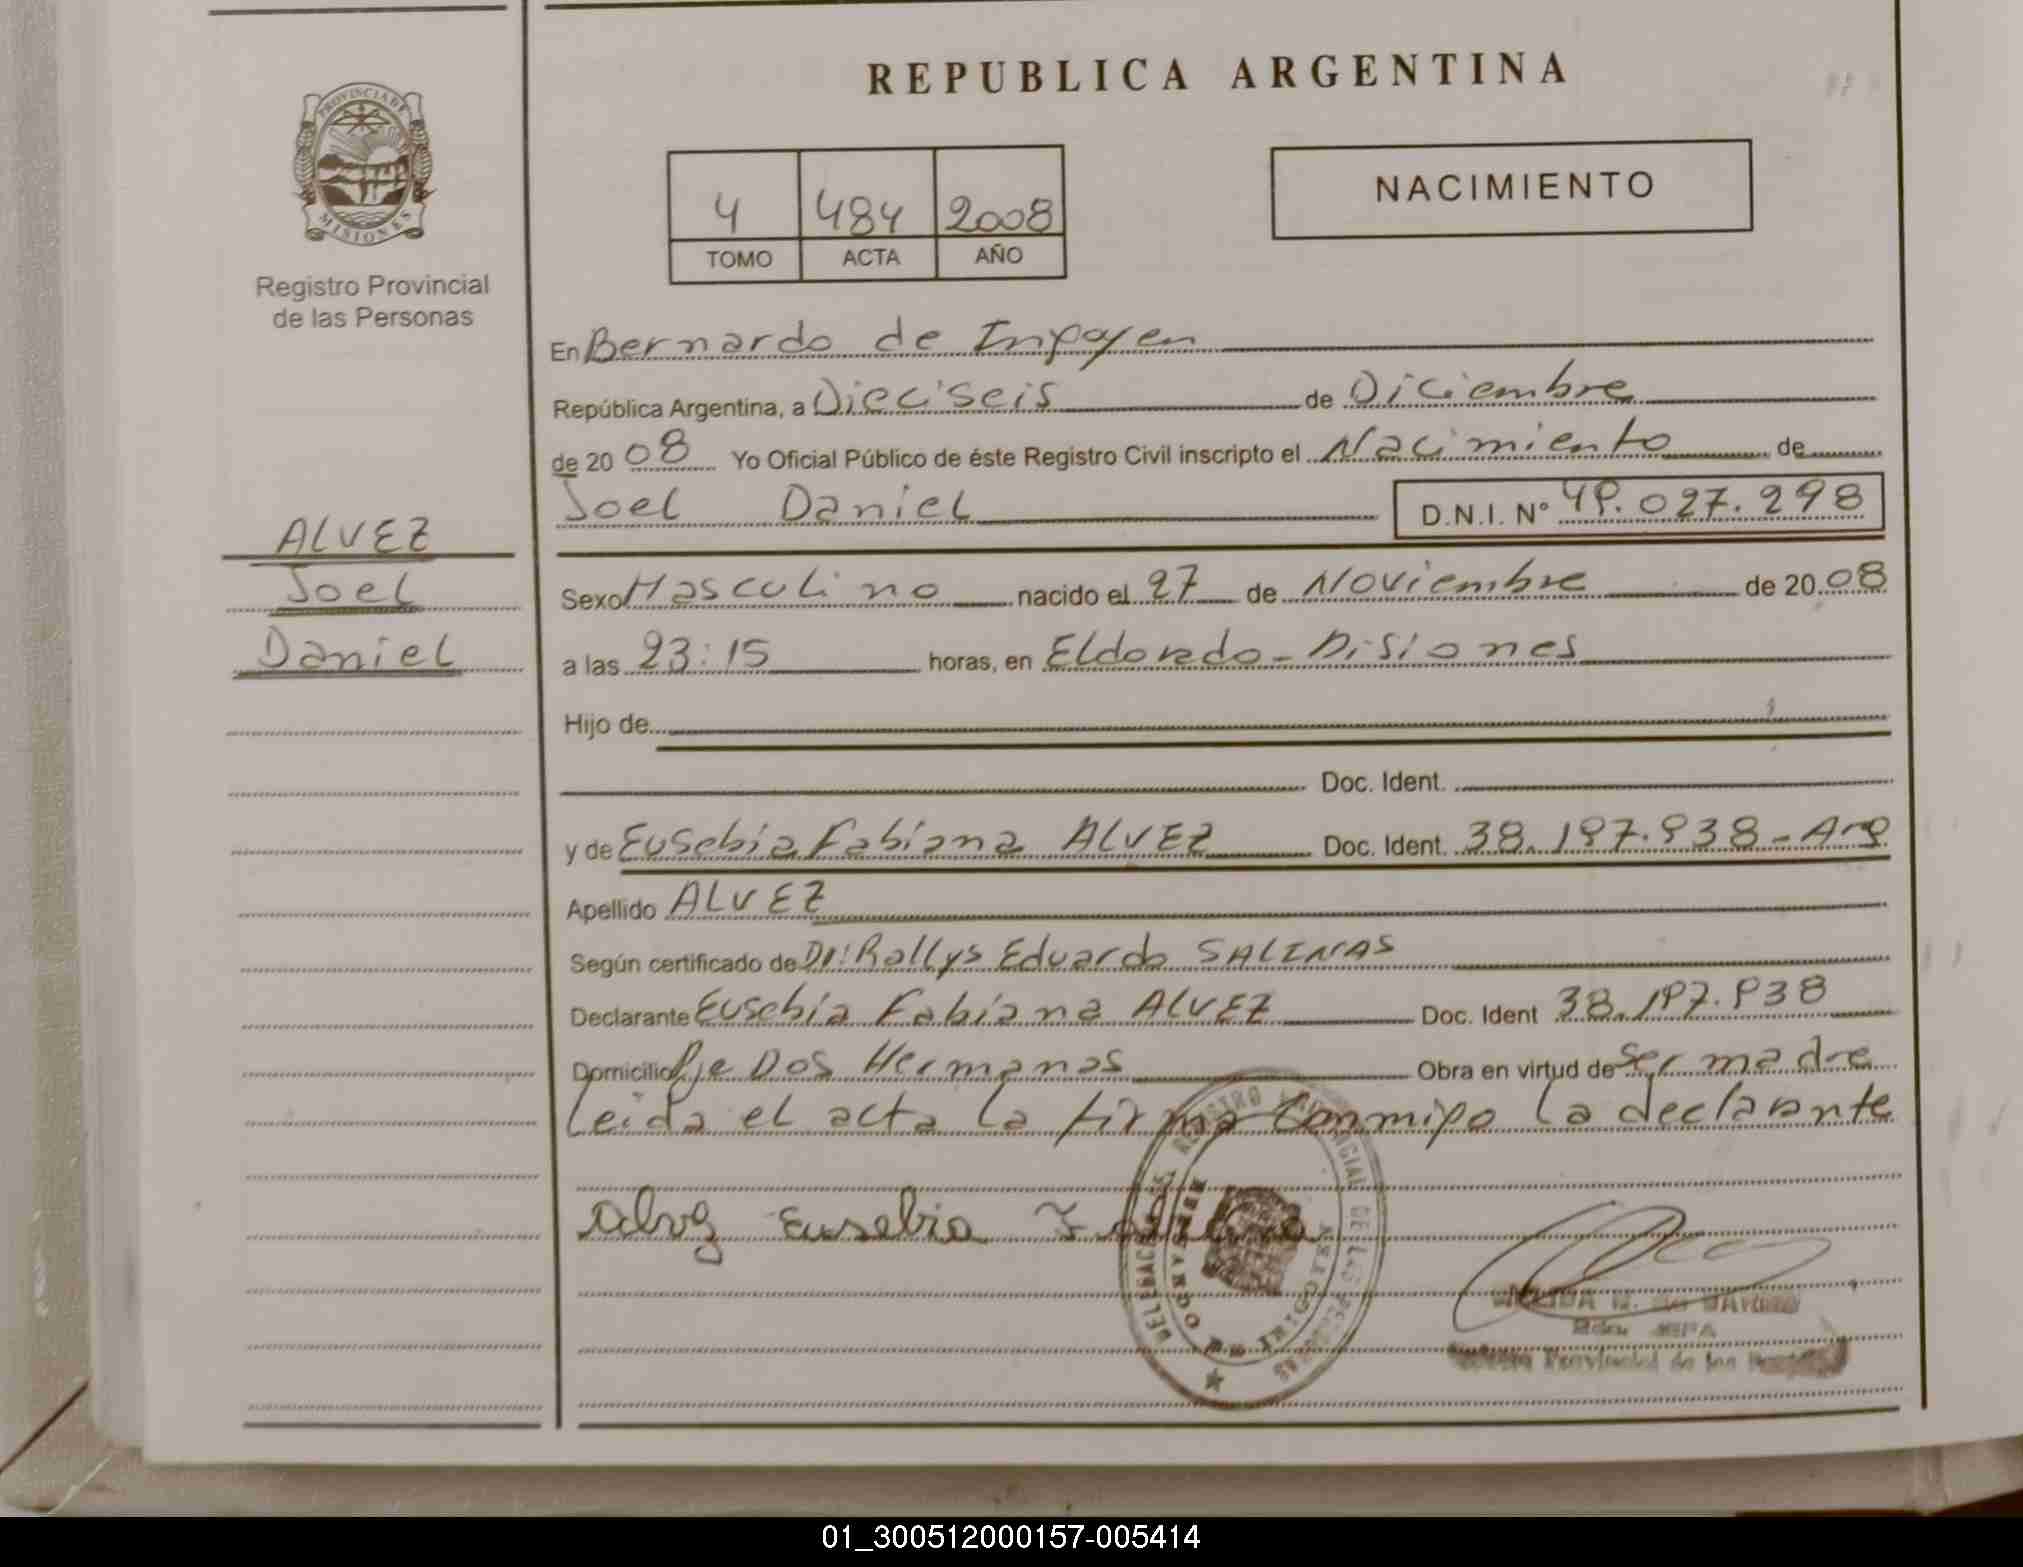 REPUBLICA ARGENTINA
PROVINCIA DE
MISIONES
Registro Provincial
de las Personas
4 484 2008
TOMO ACTA AÑO
NACIMIENTO
En Bernardo de Irigoyen
República Argentina, a Dieciseis de Diciembre
de 20 08 Yo Oficial Público de éste Registro Civil inscripto el Nacimiento de
Joel Daniel D.N.I. Nº 49.027.298
ALVEZ
Joel
Daniel
Sexo Masculino nacido el 27 de Noviembre de 20 08
a las 23:15 horas, en Eldorado - Misiones
Hijo de
Doc. Ident.
y de Eusebia Fabiana ALVEZ Doc. Ident. 38.197.938 - Arg
Apellido ALVEZ
Según certificado de Dr: Rollys Eduardo SALINAS
Declarante Eusebia Fabiana ALVEZ Doc. Ident 38.197.938
Domicilio Pje Dos Hermanas Obra en virtud de ser madre
leida el acta la firma conmigo la declarante
Alvez Eusebia Fabiana
REGISTRO PROVINCIAL DE LAS PERSONAS
Provincial de las
01_300512000157-005414